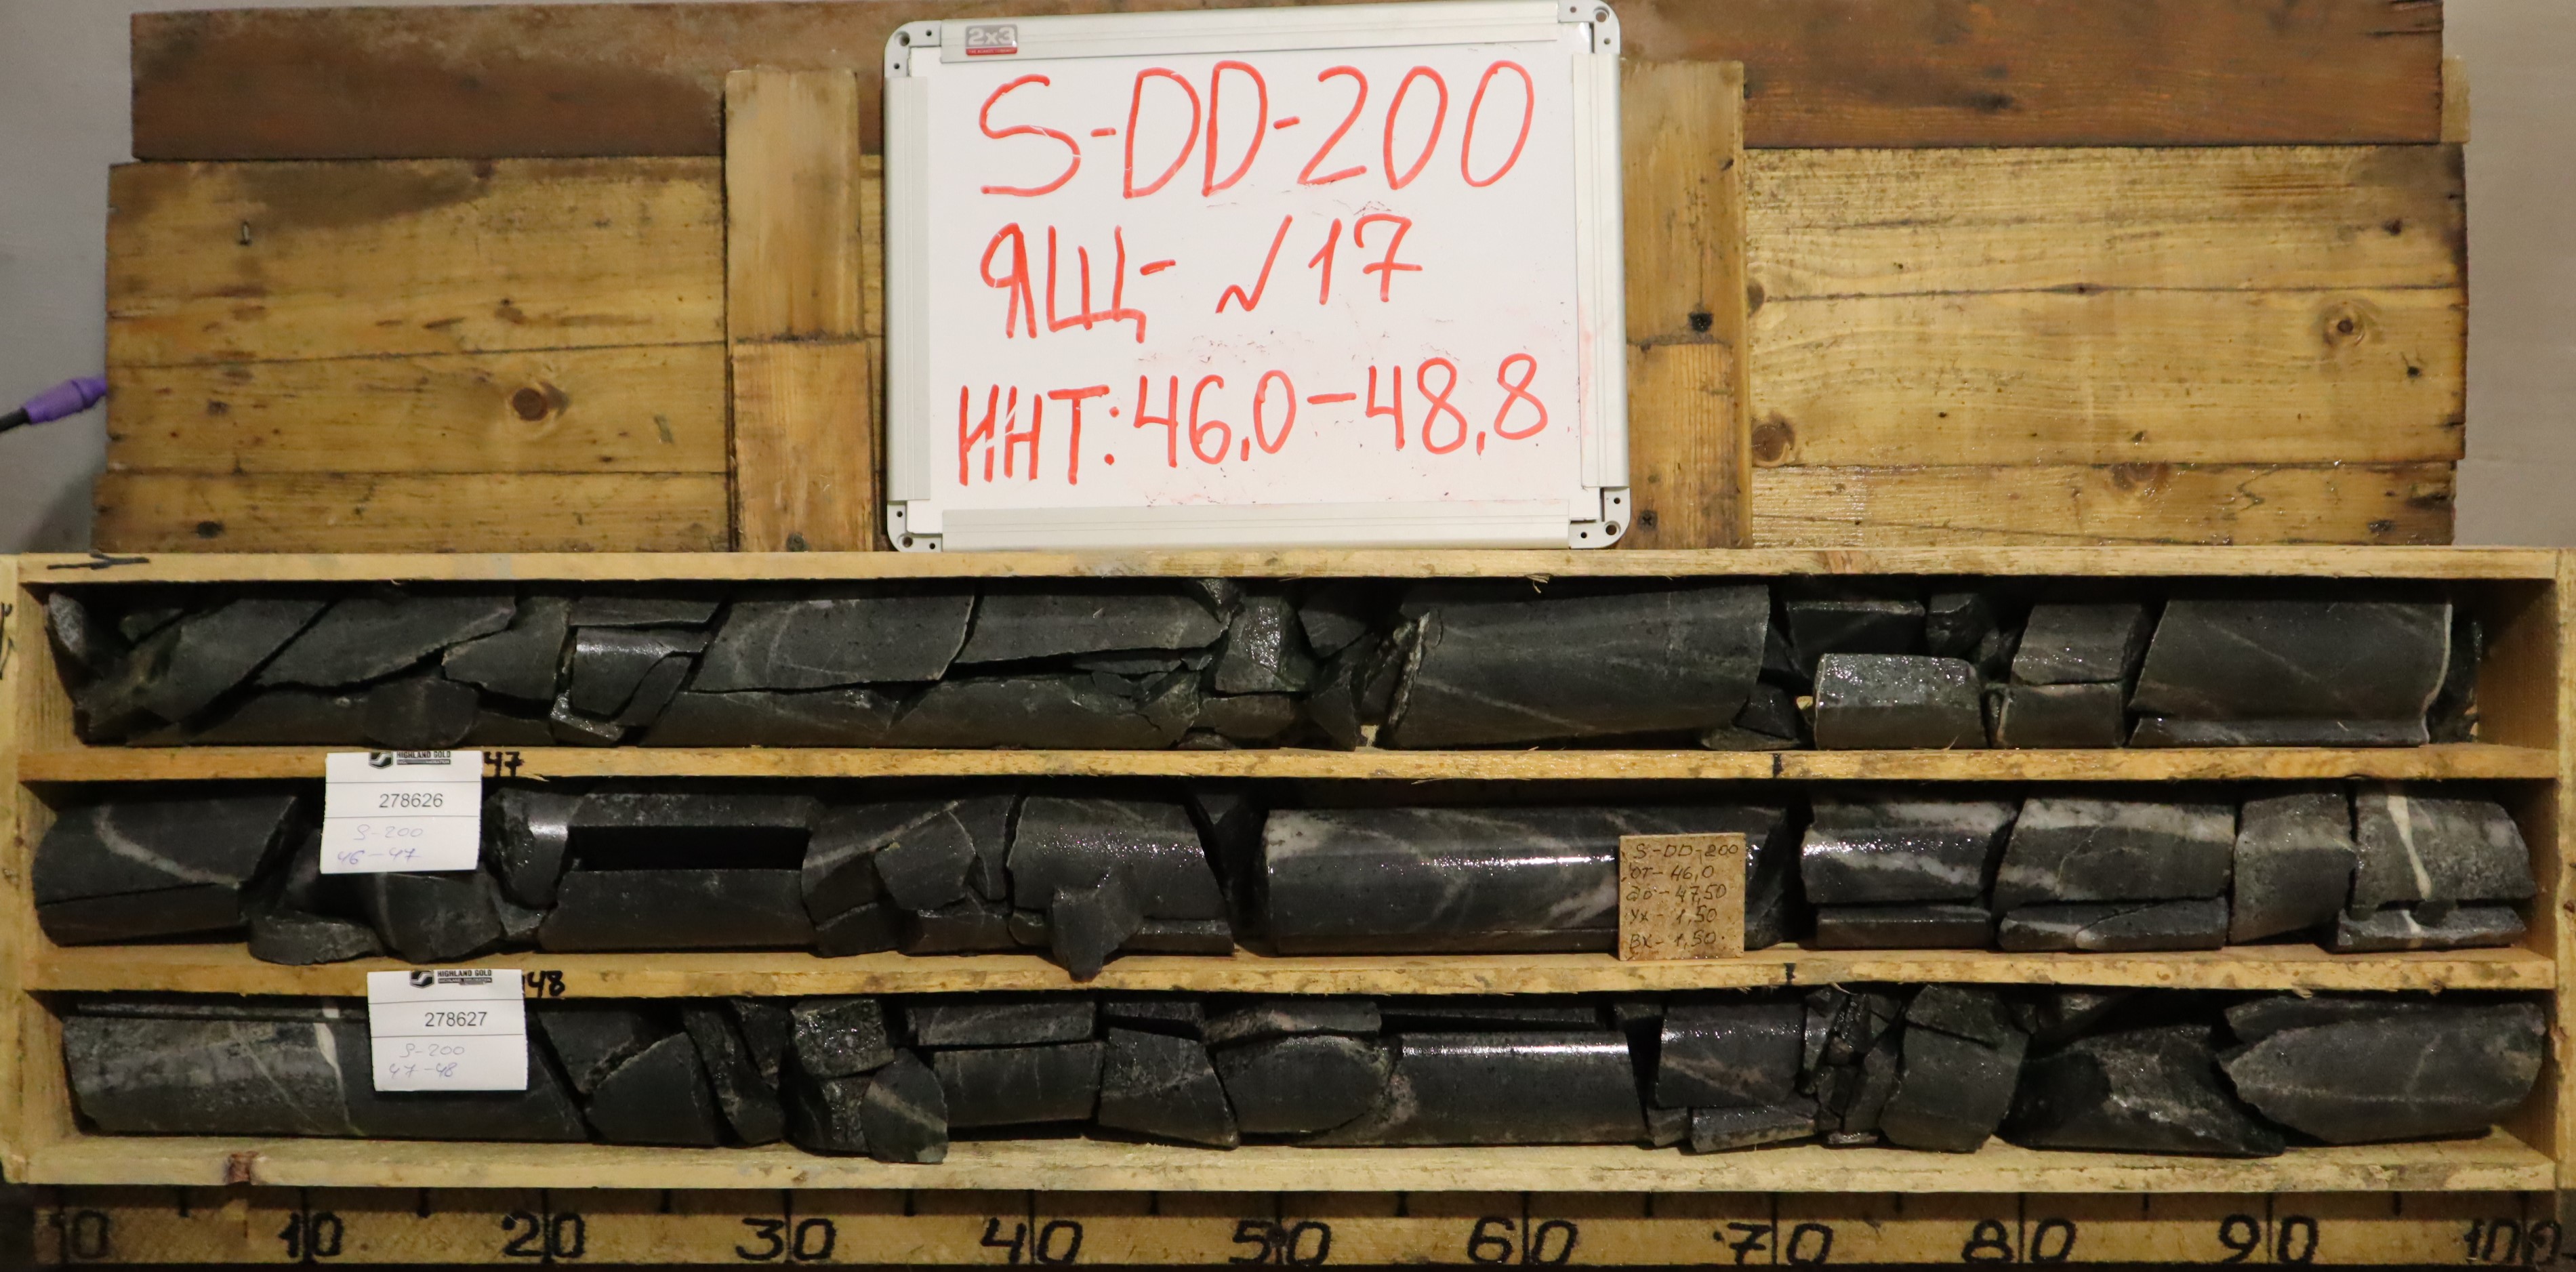 2x3
S-DD-200
ЯЩ- №17
ИНТ: 46,0-48,8
47
HIGHLAND GOLD
278626
S-200
46-47
S-DD-200
от- 46,0
до- 47,50
Ух- 1,50
Вх- 1,50.
48
HIGHLAND GOLD
278627
S-200
47-48
0 10 20 30 40 50 60 70 80 90 100